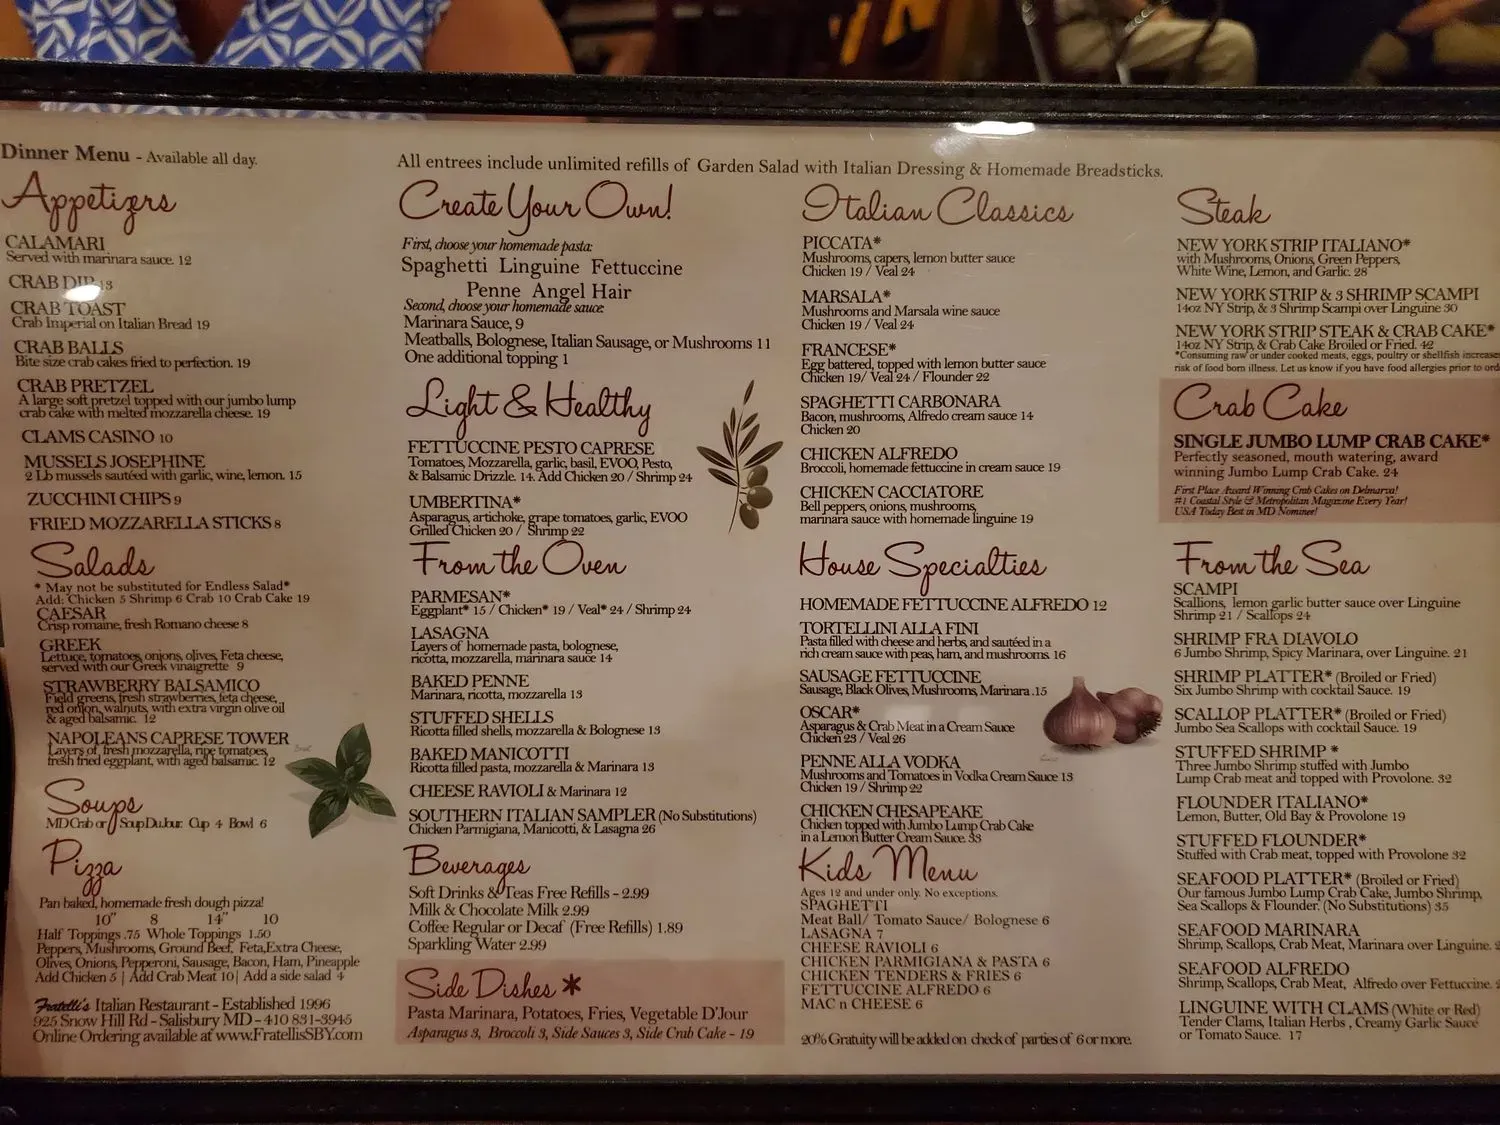 Dinner Menu - Available all day.
All entrees include unlimited refills of Garden Salad with Italian Dressing & Homemade Breadsticks.
Appetizers
CALAMARI
Served with marinara sauce. 12
CRAB DIP 13
CRAB TOAST
Crab Imperial on Italian Bread 19
CRAB BALLS
Bite size crab cakes fried to perfection. 19
CRAB PRETZEL
A large soft pretzel topped with our jumbo lump
crab cake with melted mozzarella cheese. 19
CLAMS CASINO 10
MUSSELS JOSEPHINE
2 Lb mussels sautéed with garlic, wine, lemon. 15
ZUCCHINI CHIPS 9
FRIED MOZZARELLA STICKS 8
Salads
* May not be substituted for Endless Salad*
Add: Chicken 5 Shrimp 6 Crab 10 Crab Cake 19
CAESAR
Crisp romaine, fresh Romano cheese 8
GREEK
Lettuce, tomatoes, onions, olives, Feta cheese,
served with our Greek vinaigrette 9
STRAWBERRY BALSAMICO
Field greens, fresh strawberries, feta cheese,
red onion, walnuts, with extra virgin olive oil
& aged balsamic. 12
NAPOLEANS CAPRESE TOWER
Layers of fresh mozzarella, ripe tomatoes,
fresh fried eggplant, with aged balsamic. 12
Soups
MD Crab or Soup Du Jour. Cup 4 Bowl 6
Pizza
Pan baked, homemade fresh dough pizza!
10" 8 14" 10
Half Toppings .75 Whole Toppings 1.50
Peppers, Mushrooms, Ground Beef, Feta,Extra Cheese,
Olives, Onions, Pepperoni, Sausage, Bacon, Ham, Pineapple
Add Chicken 5 | Add Crab Meat 10| Add a side salad 4
Fratelli's Italian Restaurant - Established 1996
925 Snow Hill Rd - Salisbury MD - 410 831-3945
Online Ordering available at www.FratellisSBY.com
Create Your Own!
First, choose your homemade pasta:
Spaghetti Linguine Fettuccine
Penne Angel Hair
Second, choose your homemade sauce:
Marinara Sauce, 9
Meatballs, Bolognese, Italian Sausage, or Mushrooms 11
One additional topping 1
Light & Healthy
FETTUCCINE PESTO CAPRESE
Tomatoes, Mozzarella, garlic, basil, EVOO, Pesto,
& Balsamic Drizzle. 14. Add Chicken 20 / Shrimp 24
UMBERTINA*
Asparagus, artichoke, grape tomatoes, garlic, EVOO
Grilled Chicken 20 / Shrimp 22
From the Oven
PARMESAN*
Eggplant* 15 / Chicken* 19 / Veal* 24 / Shrimp 24
LASAGNA
Layers of homemade pasta, bolognese,
ricotta, mozzarella, marinara sauce 14
BAKED PENNE
Marinara, ricotta, mozzarella 13
STUFFED SHELLS
Ricotta filled shells, mozzarella & Bolognese 13
BAKED MANICOTTI
Ricotta filled pasta, mozzarella & Marinara 13
CHEESE RAVIOLI & Marinara 12
SOUTHERN ITALIAN SAMPLER (No Substitutions)
Chicken Parmigiana, Manicotti, & Lasagna 26
Beverages
Soft Drinks & Teas Free Refills - 2.99
Milk & Chocolate Milk 2.99
Coffee Regular or Decaf (Free Refills) 1.89
Sparkling Water 2.99
Side Dishes *
Pasta Marinara, Potatoes, Fries, Vegetable D'Jour
Asparagus 3, Broccoli 3, Side Sauces 3, Side Crab Cake - 19
Italian Classics
PICCATA*
Mushrooms, capers, lemon butter sauce
Chicken 19 / Veal 24
MARSALA*
Mushrooms and Marsala wine sauce
Chicken 19 / Veal 24
FRANCESE*
Egg battered, topped with lemon butter sauce
Chicken 19/ Veal 24 / Flounder 22
SPAGHETTI CARBONARA
Bacon, mushrooms, Alfredo cream sauce 14
Chicken 20
CHICKEN ALFREDO
Broccoli, homemade fettuccine in cream sauce 19
CHICKEN CACCIATORE
Bell peppers, onions, mushrooms,
marinara sauce with homemade linguine 19
House Specialties
HOMEMADE FETTUCCINE ALFREDO 12
TORTELLINI ALLA FINI
Pasta filled with cheese and herbs, and sautéed in a
rich cream sauce with peas, ham, and mushrooms. 16
SAUSAGE FETTUCCINE
Sausage, Black Olives, Mushrooms, Marinara .15
OSCAR*
Asparagus & Crab Meat in a Cream Sauce
Chicken 23 / Veal 26
PENNE ALLA VODKA
Mushrooms and Tomatoes in Vodka Cream Sauce 13
Chicken 19 / Shrimp 22
CHICKEN CHESAPEAKE
Chicken topped with Jumbo Lump Crab Cake
in a Lemon Butter Cream Sauce. 33
Kids Menu
Ages 12 and under only. No exceptions.
SPAGHETTI
Meat Ball/ Tomato Sauce/ Bolognese 6
LASAGNA 7
CHEESE RAVIOLI 6
CHICKEN PARMIGIANA & PASTA 6
CHICKEN TENDERS & FRIES 6
FETTUCCINE ALFREDO 6
MAC n CHEESE 6
20% Gratuity will be added on check of parties of 6 or more.
Steak
NEW YORK STRIP ITALIANO*
with Mushrooms, Onions, Green Peppers,
White Wine, Lemon, and Garlic. 28
NEW YORK STRIP & 3 SHRIMP SCAMPI
14oz NY Strip, & 3 Shrimp Scampi over Linguine 30
NEW YORK STRIP STEAK & CRAB CAKE*
14oz NY Strip, & Crab Cake Broiled or Fried. 42
*Consuming raw or under cooked meats, eggs, poultry or shellfish increase
risk of food born illness. Let us know if you have food allergies prior to ord
Crab Cake
SINGLE JUMBO LUMP CRAB CAKE*
Perfectly seasoned, mouth watering, award
winning Jumbo Lump Crab Cake. 24
First Place Award Winning Crab Cakes on Delmarva!
#1 Coastal Style & Metropolitan Magazine Every Year!
USA Today Best in MD Nominee!
From the Sea
SCAMPI
Scallions, lemon garlic butter sauce over Linguine
Shrimp 21 / Scallops 24
SHRIMP FRA DIAVOLO
6 Jumbo Shrimp, Spicy Marinara, over Linguine. 21
SHRIMP PLATTER* (Broiled or Fried)
Six Jumbo Shrimp with cocktail Sauce. 19
SCALLOP PLATTER* (Broiled or Fried)
Jumbo Sea Scallops with cocktail Sauce. 19
STUFFED SHRIMP *
Three Jumbo Shrimp stuffed with Jumbo
Lump Crab meat and topped with Provolone. 32
FLOUNDER ITALIANO*
Lemon, Butter, Old Bay & Provolone 19
STUFFED FLOUNDER*
Stuffed with Crab meat, topped with Provolone 32
SEAFOOD PLATTER* (Broiled or Fried)
Our famous Jumbo Lump Crab Cake, Jumbo Shrimp,
Sea Scallops & Flounder. (No Substitutions) 35
SEAFOOD MARINARA
Shrimp, Scallops, Crab Meat, Marinara over Linguine.
SEAFOOD ALFREDO
Shrimp, Scallops, Crab Meat, Alfredo over Fettuccine.
LINGUINE WITH CLAMS (White or Red)
Tender Clams, Italian Herbs , Creamy Garlic Sauce
or Tomato Sauce. 17